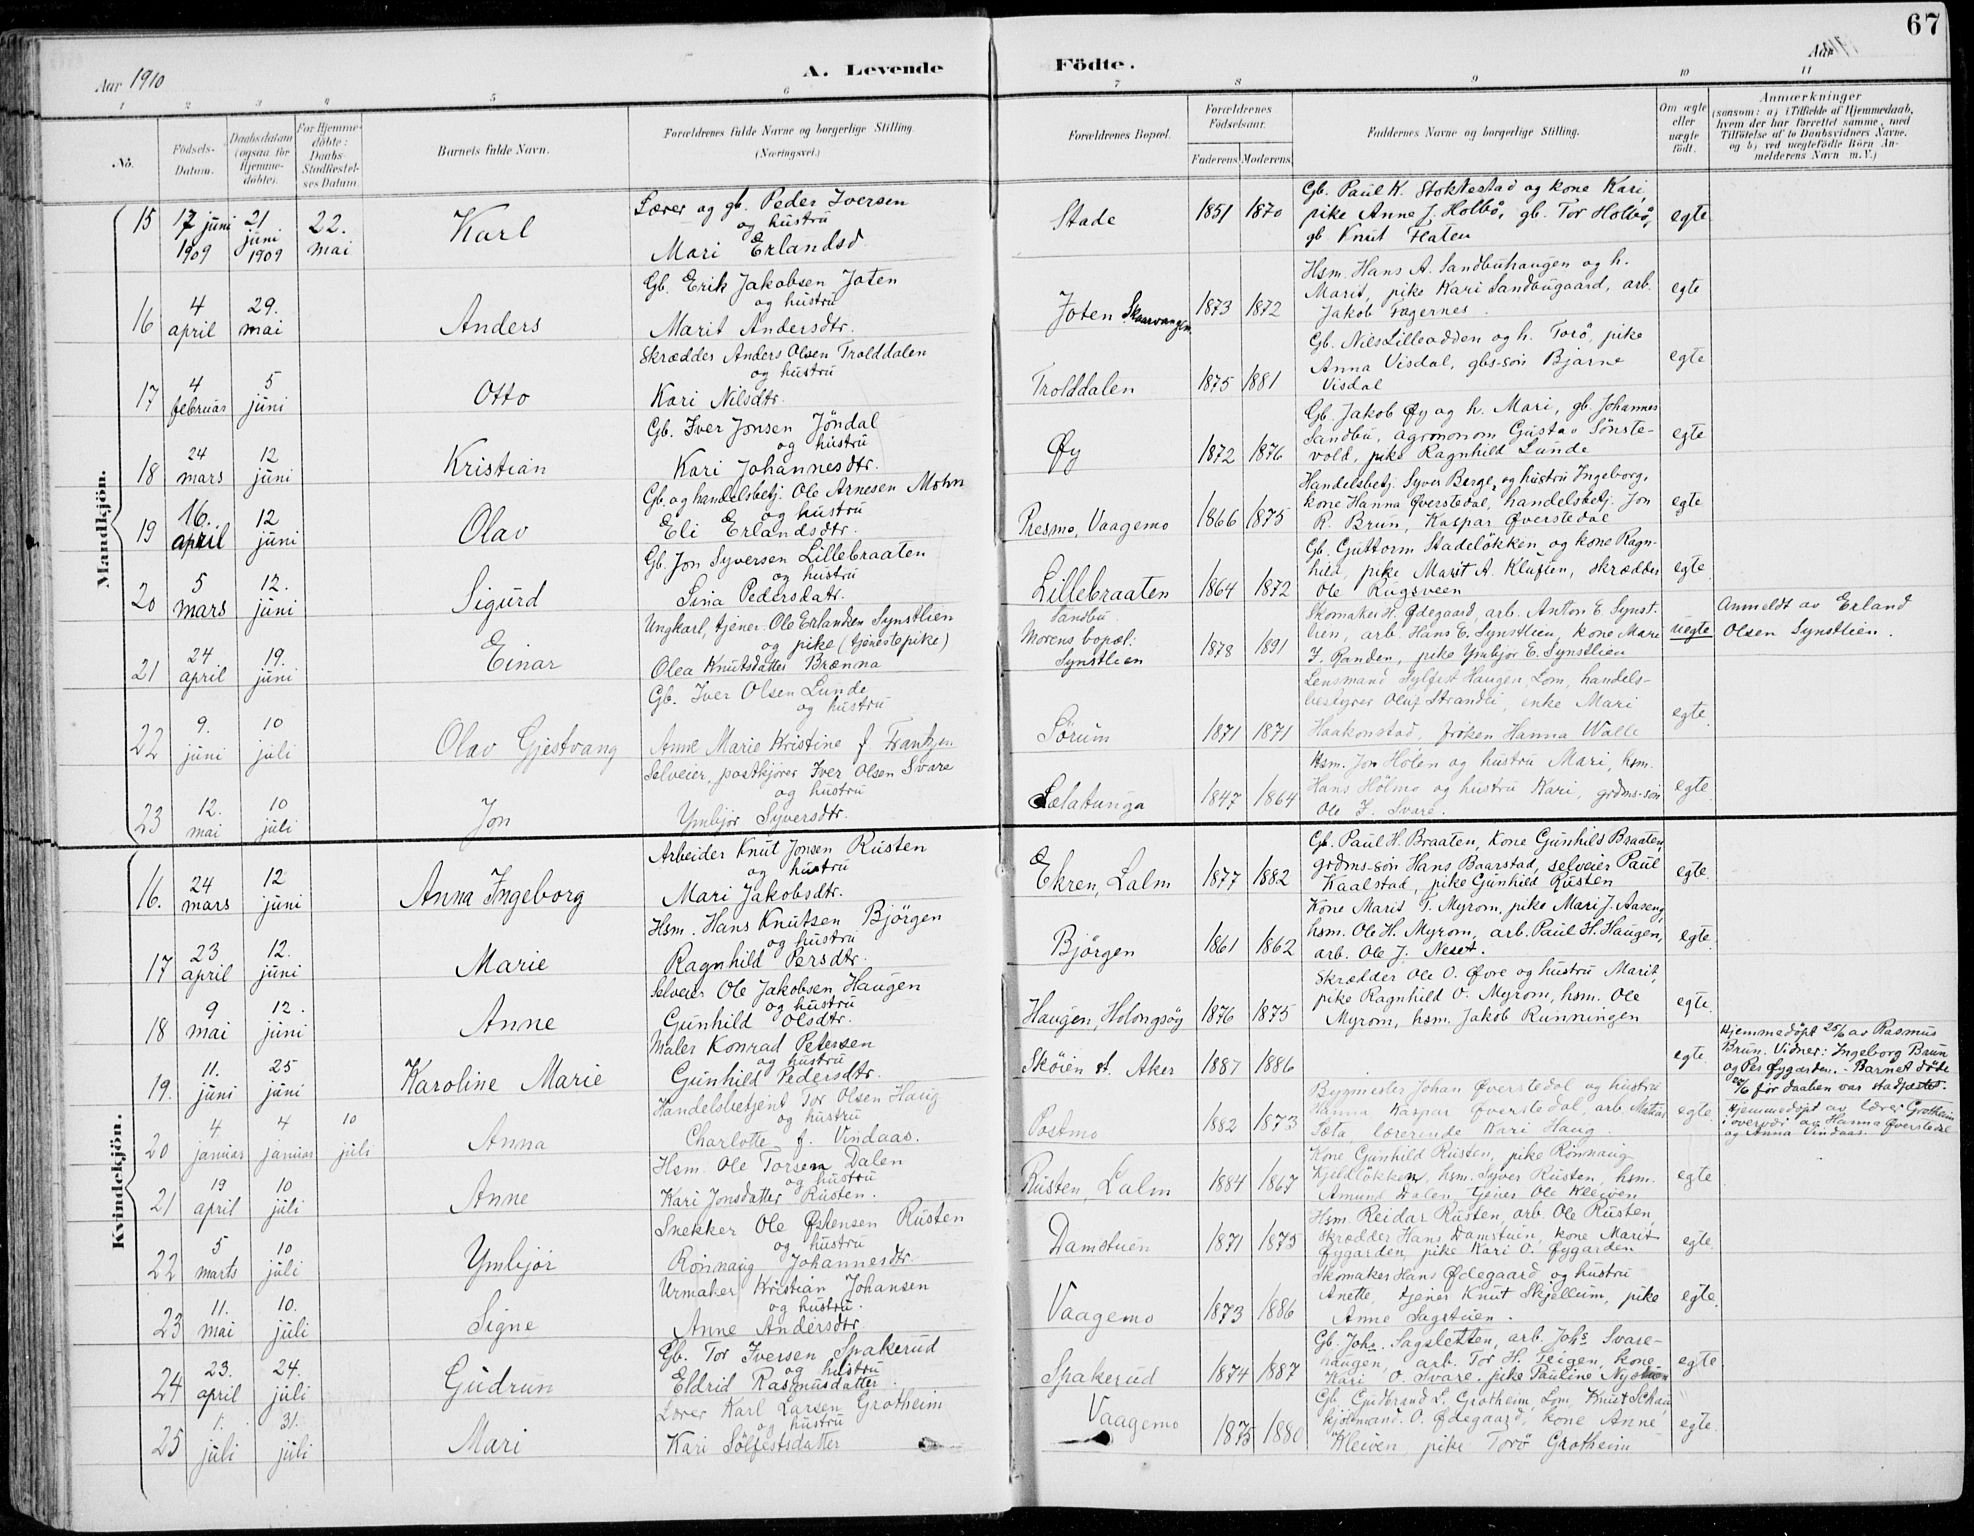 67
Aar 1910
A. Levende Födte.
1 2 3 4 5 6 7 8 9 10 11
No.
Födsels-Datum.
Daabsdatum (ogsaa for Hjemmedöbte).
For Hjemmedöbte: Daabs-Stadfæstelses Datum.
Barnets fulde Navn.
Forældrenes fulde Navne og borgerlige Stilling. (Næringsvei.)
Forældrenes Bopæl.
Forældrenes Födselsaar.
Faderens. Moderens.
Faddernes Navne og borgerlige Stilling.
Om ægte eller uægte födt.
Anmærkninger
(saasom: a) i Tilfælde af Hjemmedaab, hvem der har forrettet samme, med Tilföielse af to Daabsvidners Navne, og b) ved uægtefödte Börn Anmelderens Navn m. V.)
Mandkjön.
15 17 juni 1909 21 juni 1909 22. mai Karl
Lærer og gb. Peder Iversen
og hustru
Mari Erlandsd
Stade 1851 1870
Gb. Paul K. Stokkestad og kone Kari,
pike Anne J. Holbö, gb. Tor Holbö,
gb. Knut Haten
egte
16 4 april 29. mai Anders
Gb. Erik Jakobsen Joten
og hustru
Marit Andersdtr.
Joten Skaarvangen 1873 1872
Hsm. Hans A. Sandbuhaugen og h.
Marit, pike Kari Sandbugaard, arb.
Jakob Fagernes.
egte
17 4 februar 5 juni Otto
Skrædder Anders Olsen Trolddalen
og hustru
Kari Nilsdtr.
Trolddalen 1875 1881
Gb. Nils Lilleodden og h. Torö, pike
Anna Visdal, gbs-sön Bjarne
Visdal
egte
18 24 mars 12 juni Kristian
Gb. Iver Jonsen Jöndal
og hustru
Kari Johannesdtr.
Øy 1872 1876
Gb. Jakob Øy og h. Mari, gb. Johannes
Sandbu, agronom Gustav Sönste-
vold, pike Ragnhild Lunde
egte
19 16. april 12 juni Olav
Gb. og handelsbetj. Ole Arnesen Mohn
og hustru
Eli Erlandsdtr.
Presmo, Vaagemo 1866 1875
Handelsbetj. Syver Berge og hustru Ingeborg,
kone Hanna Øverstedal, handelsbetj. Jon
R. Brun, Kaspar Øverstedal
egte
20 5 mars 12. juni Sigurd
Gb. Jon Syversen Lillebraaten
og hustru
Sina Pedersdatr.
Lillebraaten 1864 1872
Gb. Guttorm Stadelökken og kone Ragn-
hild, pike Marit A. Kluften, skrædder
Ole Rugsveen
egte
21 24 april 19. juni Einar
Ungkarl, tjener Ole Erlandsen Synstlien
og pike (tjenestepike)
Olea Knutsdatter Brænna
Sandbu
Morens bopæl:
Synstlien
1878 1891
Skomaker H. Ödegaard, arb. Anton E. Synst-
lien, arb. Hans E. Synstlien, kone Mari
J. Randen, pike Ymbjör E. Synstlien
uegte
Anmeldt av Erland
Olsen Synstlien.
22 9. juni 10 juli Olav Gjestvang
Gb. Iver Olsen Lunde
og hustru
Anne Marie Kristine f. Frantzen
Sörum 1871 1871
Lensmand Sylfest Haugen, Lom, handels-
bestyrer Oluf Strandli, enke Mari
Haakonstad, fröken Hanna Walle
egte.
23 12. mai 10 juli Jon
Selveier, postkjörer Iver Olsen Svare
og hustru
Ymbjör Syversdtr.
Sælatunga 1847 1864
Hsm. Jon Holen og hustru Mari, hsm.
Hans Hölmo og hustru Kari, grdms-sön
Ole I. Svare.
egte
Kvindekjön.
16. 24 mars 12 juni Anna Ingeborg
Arbeider Knut Jonsen Rusten
og hustru
Mari Jakobsdtr.
Ekren, Lalm 1877 1882
Gb. Paul H. Braaten, kone Gunhild Braaten,
grdms-sön Hans Baarstad, selveier Paul
Kaalstad, pike Gunhild Rusten
egte.
17 23 april 12. juni Marie
Hsm. Hans Knutsen Björgen
og hustru
Ragnhild Persdtr.
Björgen 1861 1862
Kone Marit T. Myrom, pike Mari J. Aaseng,
hsm. Ole H. Myrom, arb. Paul H. Haugen,
arb. Ole J. Neset.
egte.
18 9 mai 12. juni Anne
Selveier Ole Jakobsen Haugen
og hustru
Gunhild Olsdtr.
Haugen, Holongsöy 1876 1875
Skrædder Ole O. Øvre og hustru Marit,
pike Ragnhild O. Myrom, hsm. Ole
Myrom, hsm. Jakob Runningen
egte.
19. 11. juni 25 juni Karoline Marie
Maler Konrad Petersen
og hustru
Gunhild Pedersdtr.
Sköien st. Aker 1887 1886
egte.
Hjemmedöpt 25/6 av Rasmus
Brun. Vidner: Ingeborg Brun
og Per Øygarden. - Barnet döde
før daaben var stadfæstet.
20 4 januar 4 januar 10 juli Anna
Handelsbetjent Tor Olsen Haug
og hustru
Charlotte f. Vindaas.
Postmo 1882 1873
Bygmester Johan Øverstedal og hustru
Hanna, Kaspar Øverstedal, arb. Mattias
Sæta, lærerinde Kari Haug.
egte.
Hjemmedöpt av lærer Grotheim
i overvær av Hanna Øverstedal
og Anna Vindaas.
21 19 april 10 juli Anne
Hsm. Ole Torsen Dalen
og hustru
Kari Jonsdatter Rusten.
Rusten, Lalm 1884 1867
Kone Gunhild Rusten, pike Rönnaug
Kjeldlökken, hsm. Syver Rusten, hsm.
Amund Dalen, tjener Ole Kleiven
egte
22 5 marts 10 juli Ymbjör
Snekker Ole Østensen Rusten
og hustru
Rönnaug Johannesdtr.
Damstuen 1871 1875
Hsm. Reidar Rusten, arb. Ole Rusten,
skrædder Hans Damstuen, kone Marit
Øygarden, pike Kari O. Øygarden
egte.
23 11. mai 10. juli Signe
Urmaker Kristian Johansen
og hustru.
Anne Andersdtr.
Vaagemo 1873 1886
Skomaker Hans Ødegaard og hustru
Anette, tjener Knut Skjellum, pike
Anne Sagstuen.
egte.
24 23. april 24. juli Gudrun
Gb. Tor Iversen Spakerud
og hustru
Eldrid Rasmusdatter.
Spakerud 1874 1887
Gb. Johs. Sagsletten, arb. Johs Svare-
haugen, arb. Tor H. Teigen, kone
Kari O. Svare, pike Pauline Nystuen
egte.
25 1. juli 31. juli Mari
Lærer Karl Larsen Grotheim
og hustru
Kari Sölfestsdatter
Vaagemo 1875 1880
Gb. Gudbrand L. Grotheim, Lom, Knut Schau,
kjöbmand O. Ødegaard, kone Anne
Kleiven, pike Torö Grotheim
egte.